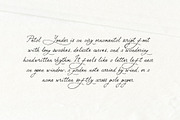 Petal Yonder is an airy ornamental script font
with long swashes, delicate curves, and a wandering
handwritten rhythm. It feels like a letter left near
an open window, a garden note carried by wind, or a
name written softly across pale paper.